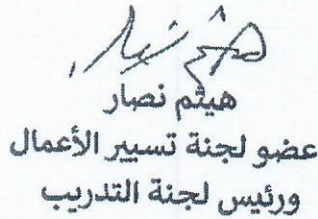 هيثم نصار
عضو لجنة تسيير الأعمال
ورئيس لجنة التدريب